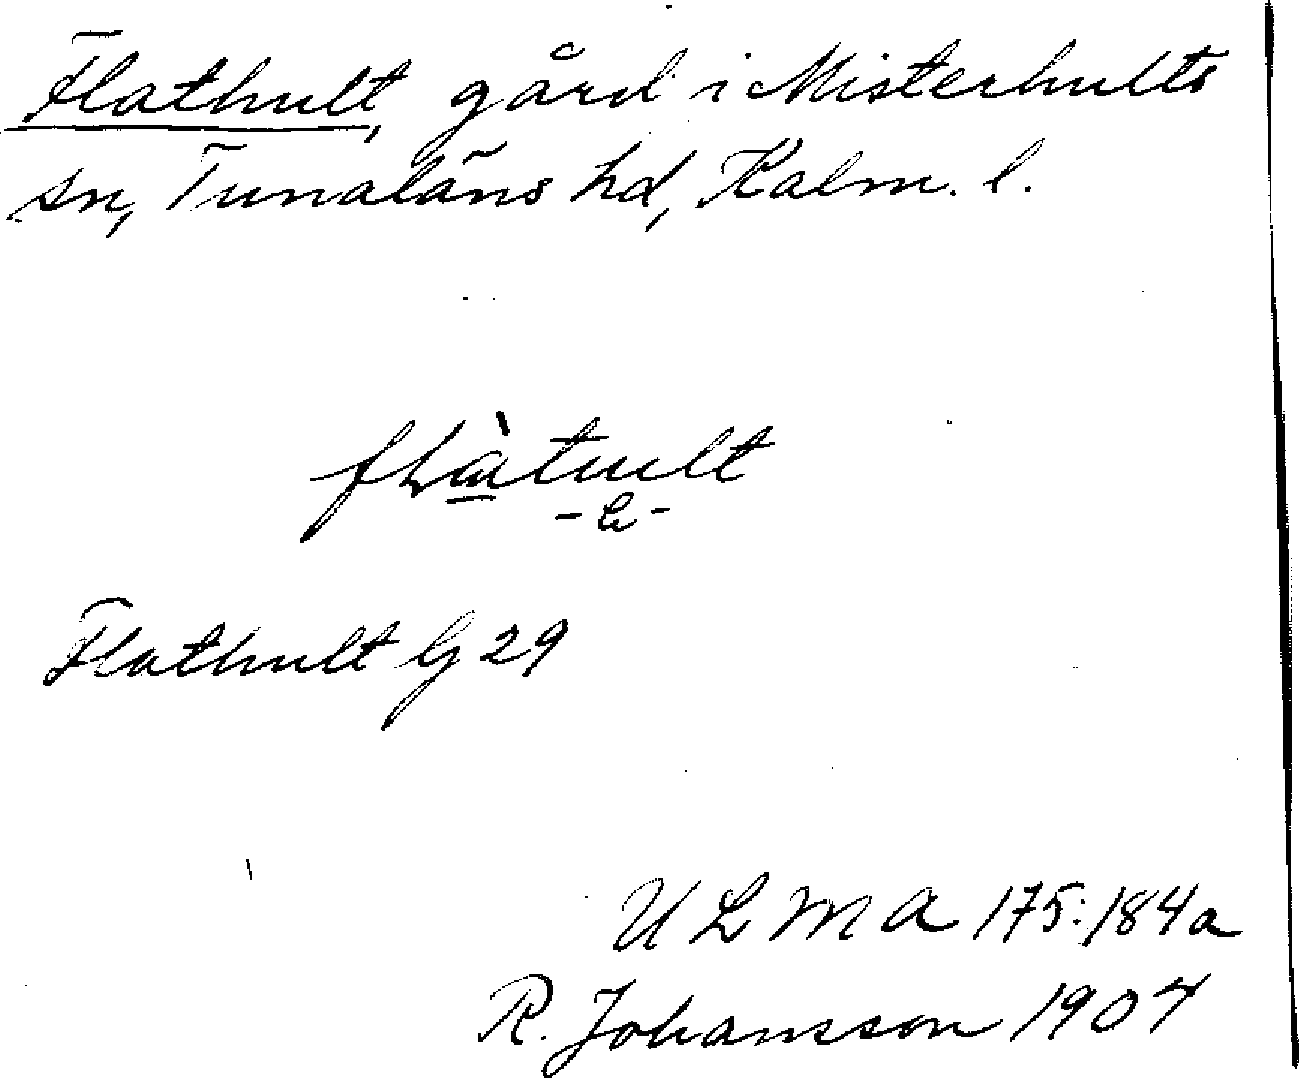 Flathult, gård i Misterhults
sn, Tunaläns hd, Kalm. l.
-h-
Flathult G 29
ULMA 175:184a
R. Johansson 1904